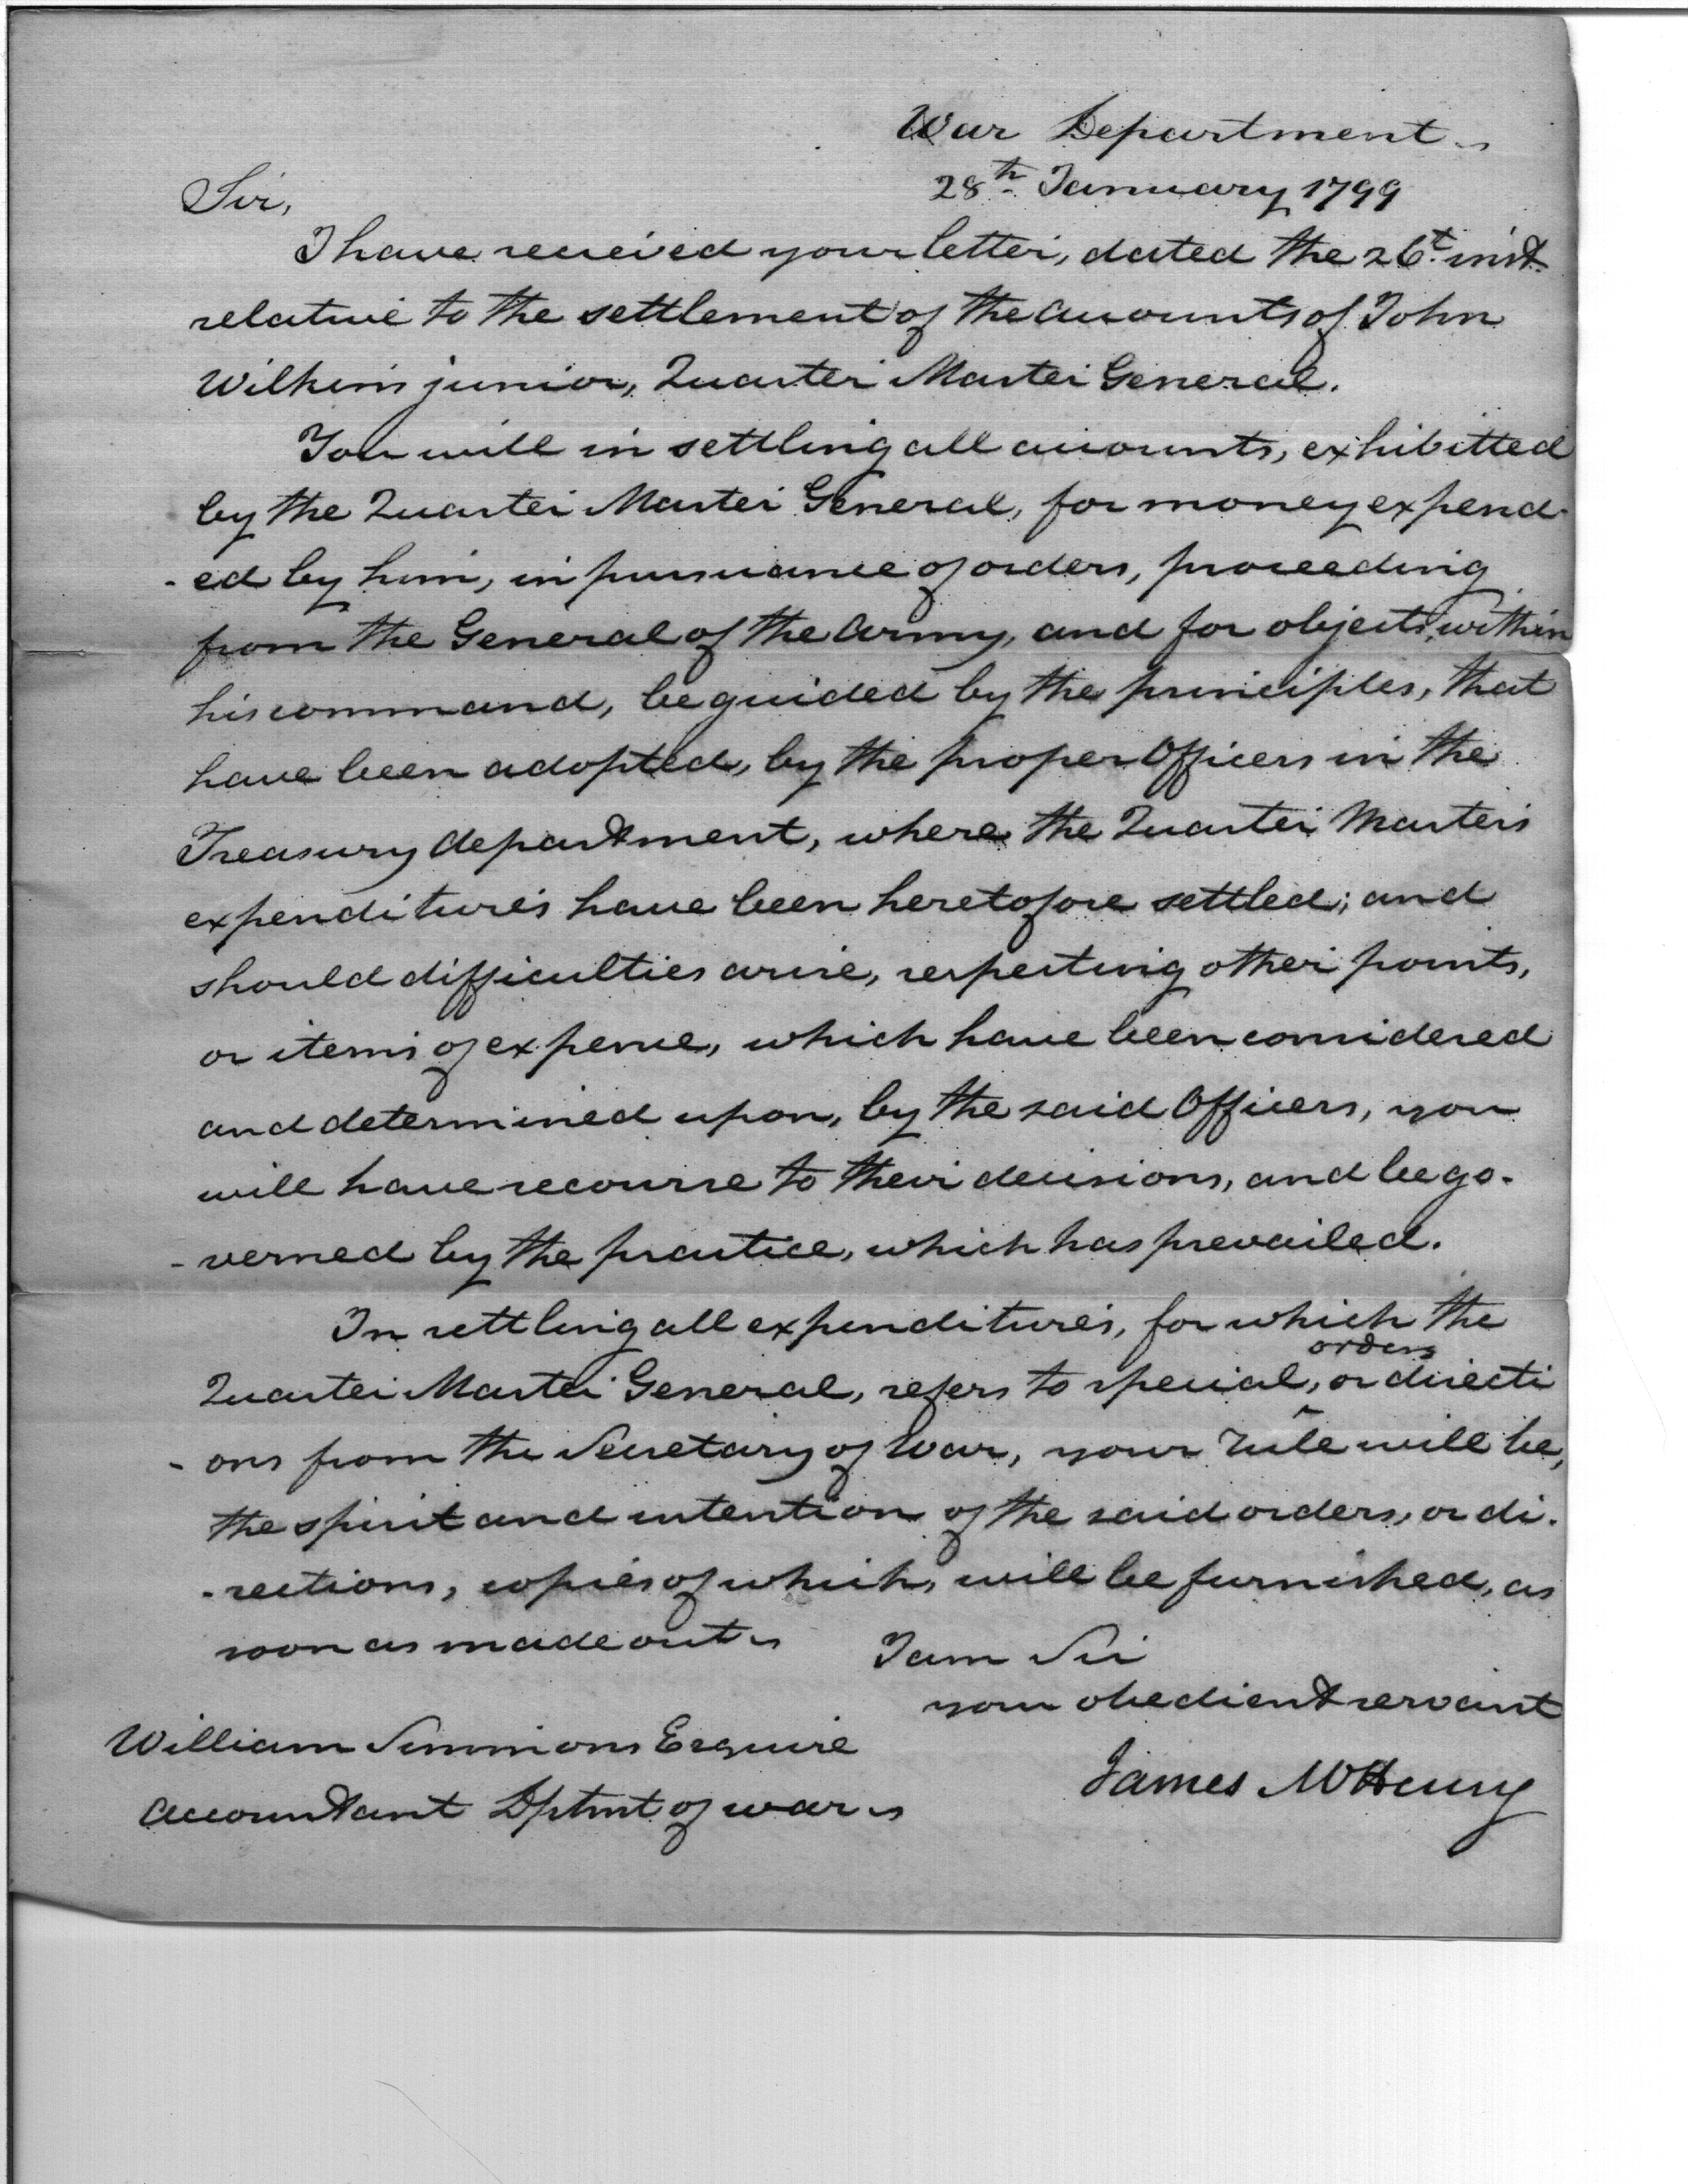 War Department
28th January 1799
Sir,
I have received your letter, dated the 26t. inst.
relative to the settlement of the accounts of John
Wilkins junior, Quarter Master General.
You will in settling all accounts, exhibitted
by the Quarter Master General, for money expend-
-ed by him, in pursuance of orders, proceeding
from the General of the Army, and for objects, within
his command, be guided by the principles, that
have been adopted, by the proper Officers in the
Treasury department, where the Quarter Masters
expenditures have been heretofore settled; and
should difficulties arise, respecting other points,
or items of expence, which have been considered
and determined upon, by the said Officers, you
will have recourse to their decisions, and be go-
-verned by the practice, which has prevailed.
In settling all expenditures, for which the
orders
Quarter Master General, refers to special, or directi
-ons from the Secretary of War, your rule will be,
the spirit and intention of the said orders, or di-
-rections, copies of which, will be furnished, as
soon as made out
I am Sir
your obedient servant
William Simmons Esquire
James McHenry
Accountant Dptmt of war